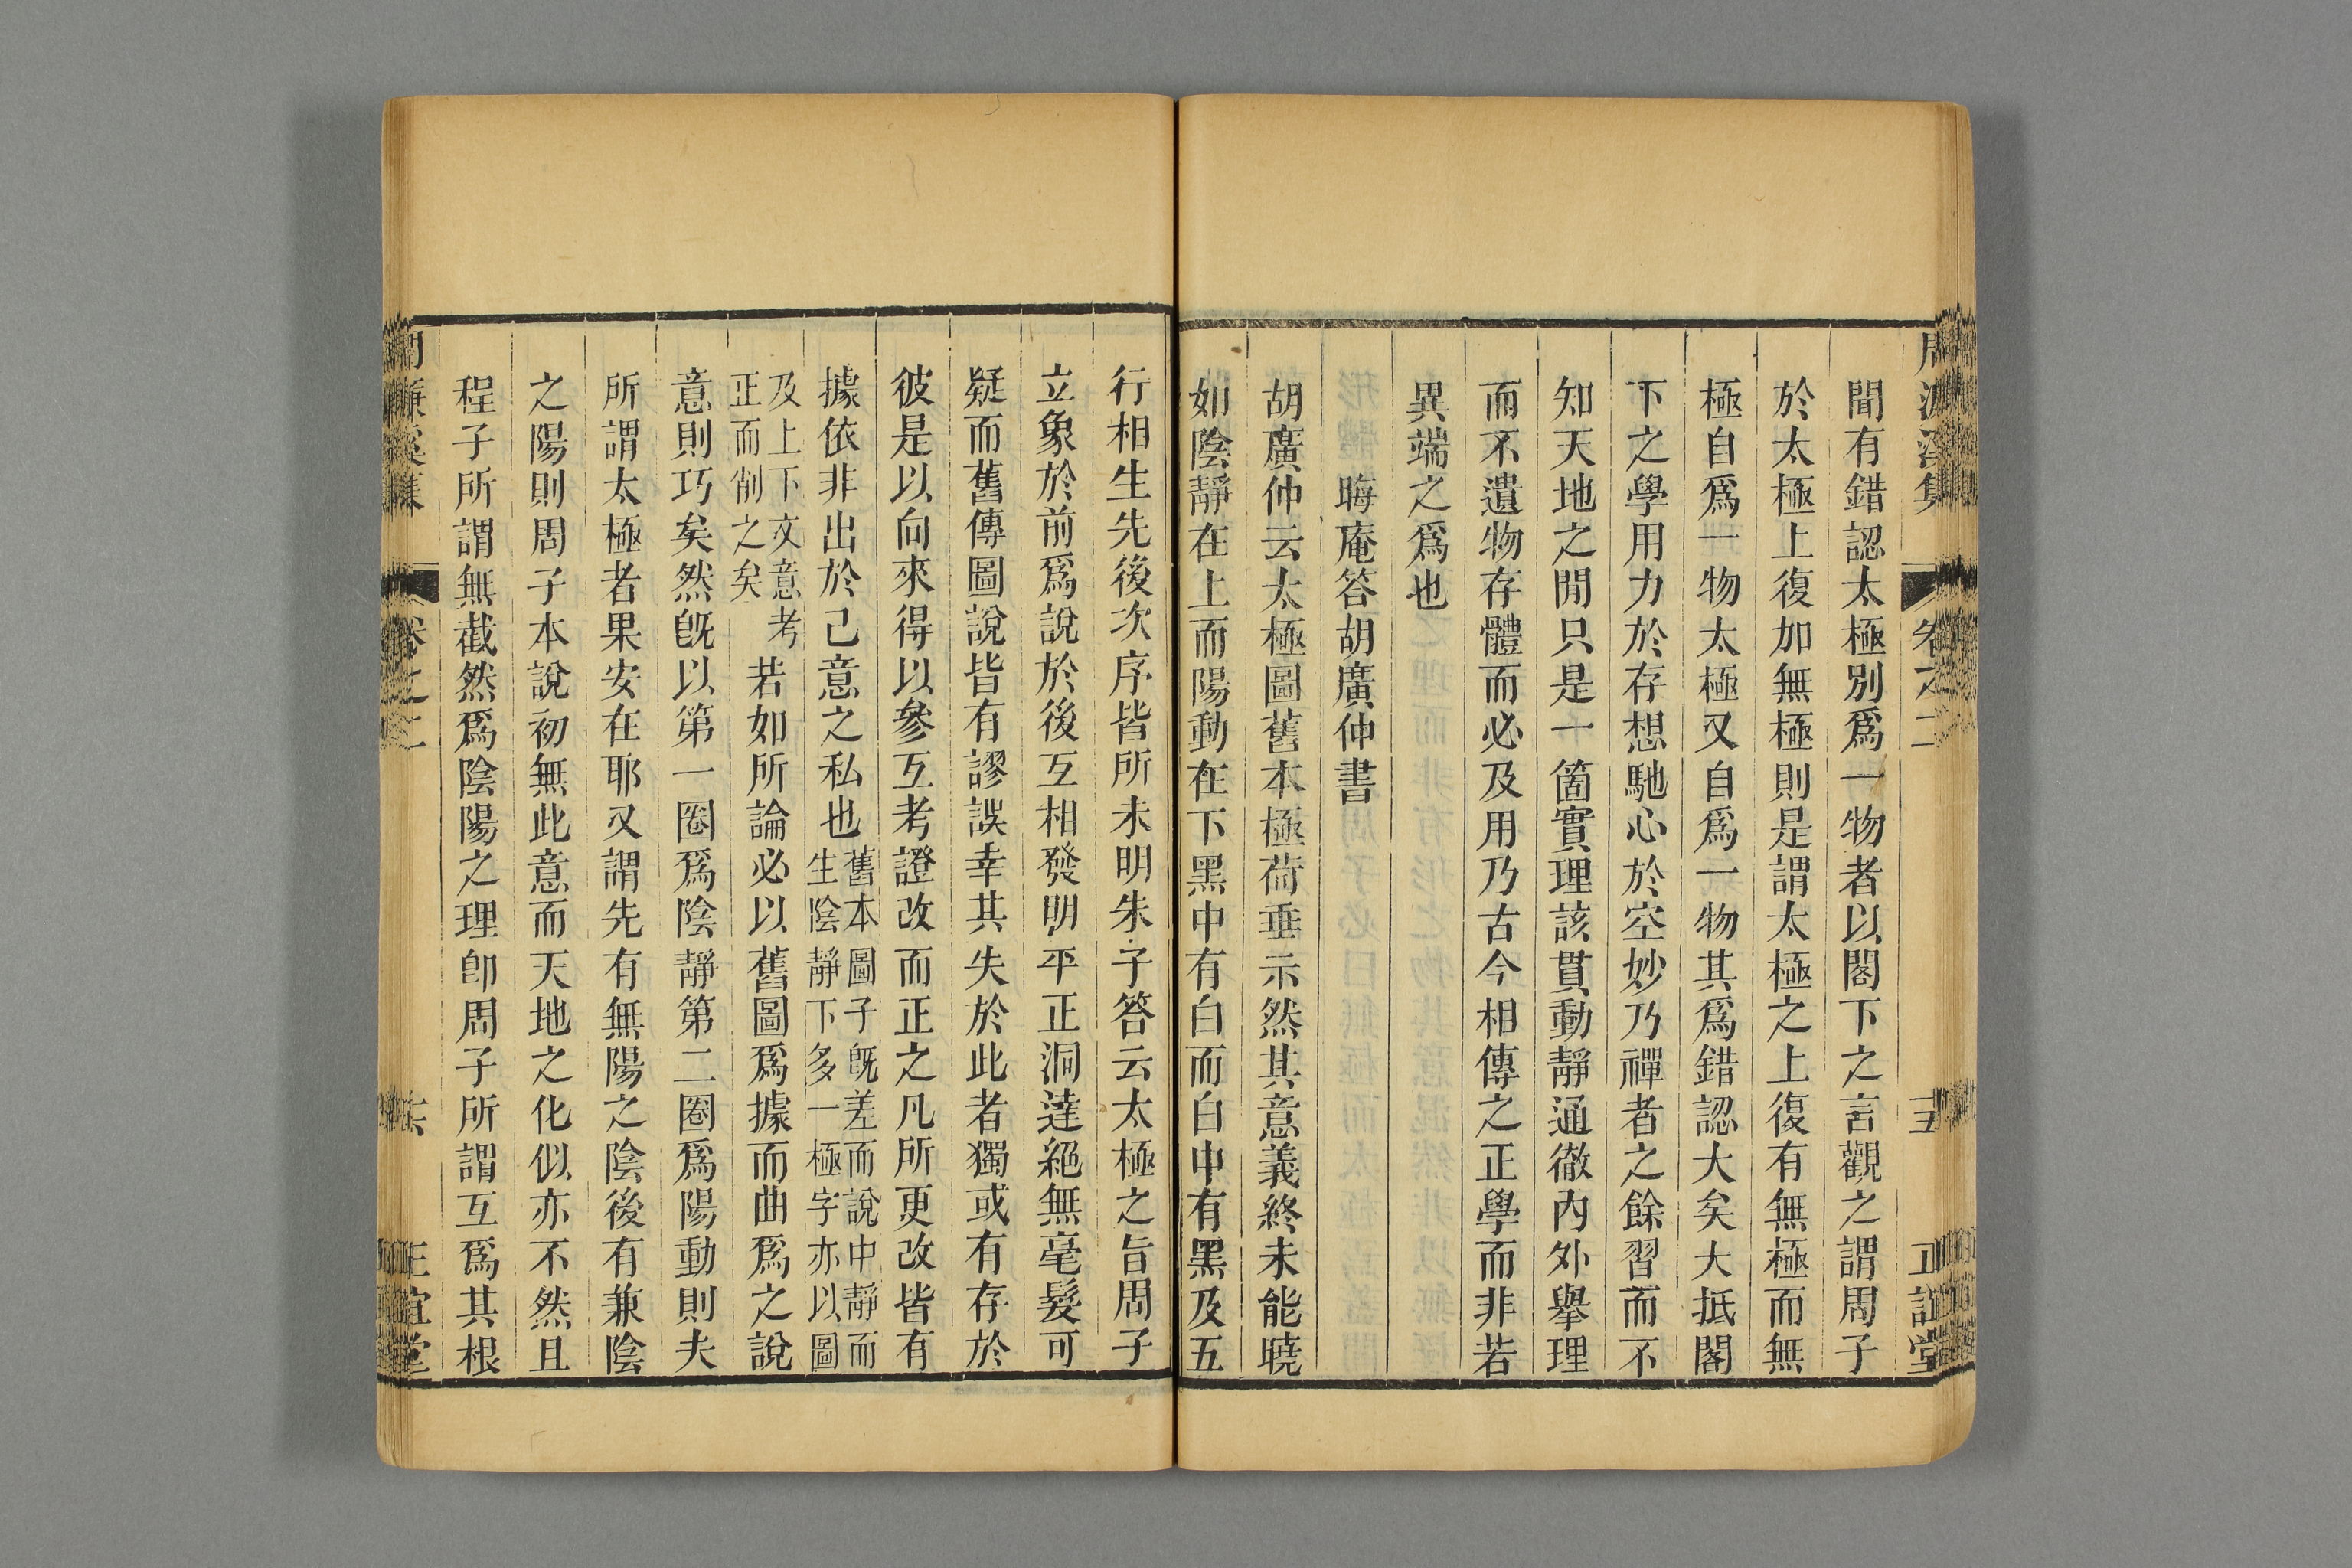 閒有錯認太極別爲一物者以閣下之言觀之謂周子
於太極上復加無極則是謂太極之上復有無極而無
極自爲一物太極又自爲一物其爲錯認大矣大抵閣
下之學用力於存想馳心於空妙乃禪者之餘習而不
知天地之閒只是一箇實理該貫動靜通徹內外舉理
而不遺物存體而必及用乃古今相傳之正學而非若
異端之爲也
晦庵答胡廣仲書
胡廣仲云太極圖舊本極荷垂示然其意義終未能曉
如陰靜在上而陽動在下黑中有白而白中有黑及五
行相生先後次序皆所未明朱子答云太極之旨周子
立象於前爲說於後互相發明平正洞達絕無毫髮可
疑而舊傳圖說皆有謬誤幸其失於此者獨或有存於
彼是以向來得以參互考證改而正之凡所更改皆有
據依非出於己意之私也舊本圖子旣差而說中靜而
生陰靜下多一極字亦以圖
及上下文意考
正而削之矣若如所論必以舊圖爲據而曲爲之說
意則巧矣然旣以第一圈爲陰靜第二圈爲陽動則夫
所謂太極者果安在耶又謂先有無陽之陰後有兼陰
之陽則周子本說初無此意而天地之化似亦不然且
程子所謂無截然爲陰陽之理卽周子所謂互爲其根
周濂溪集
卷之二
正誼堂